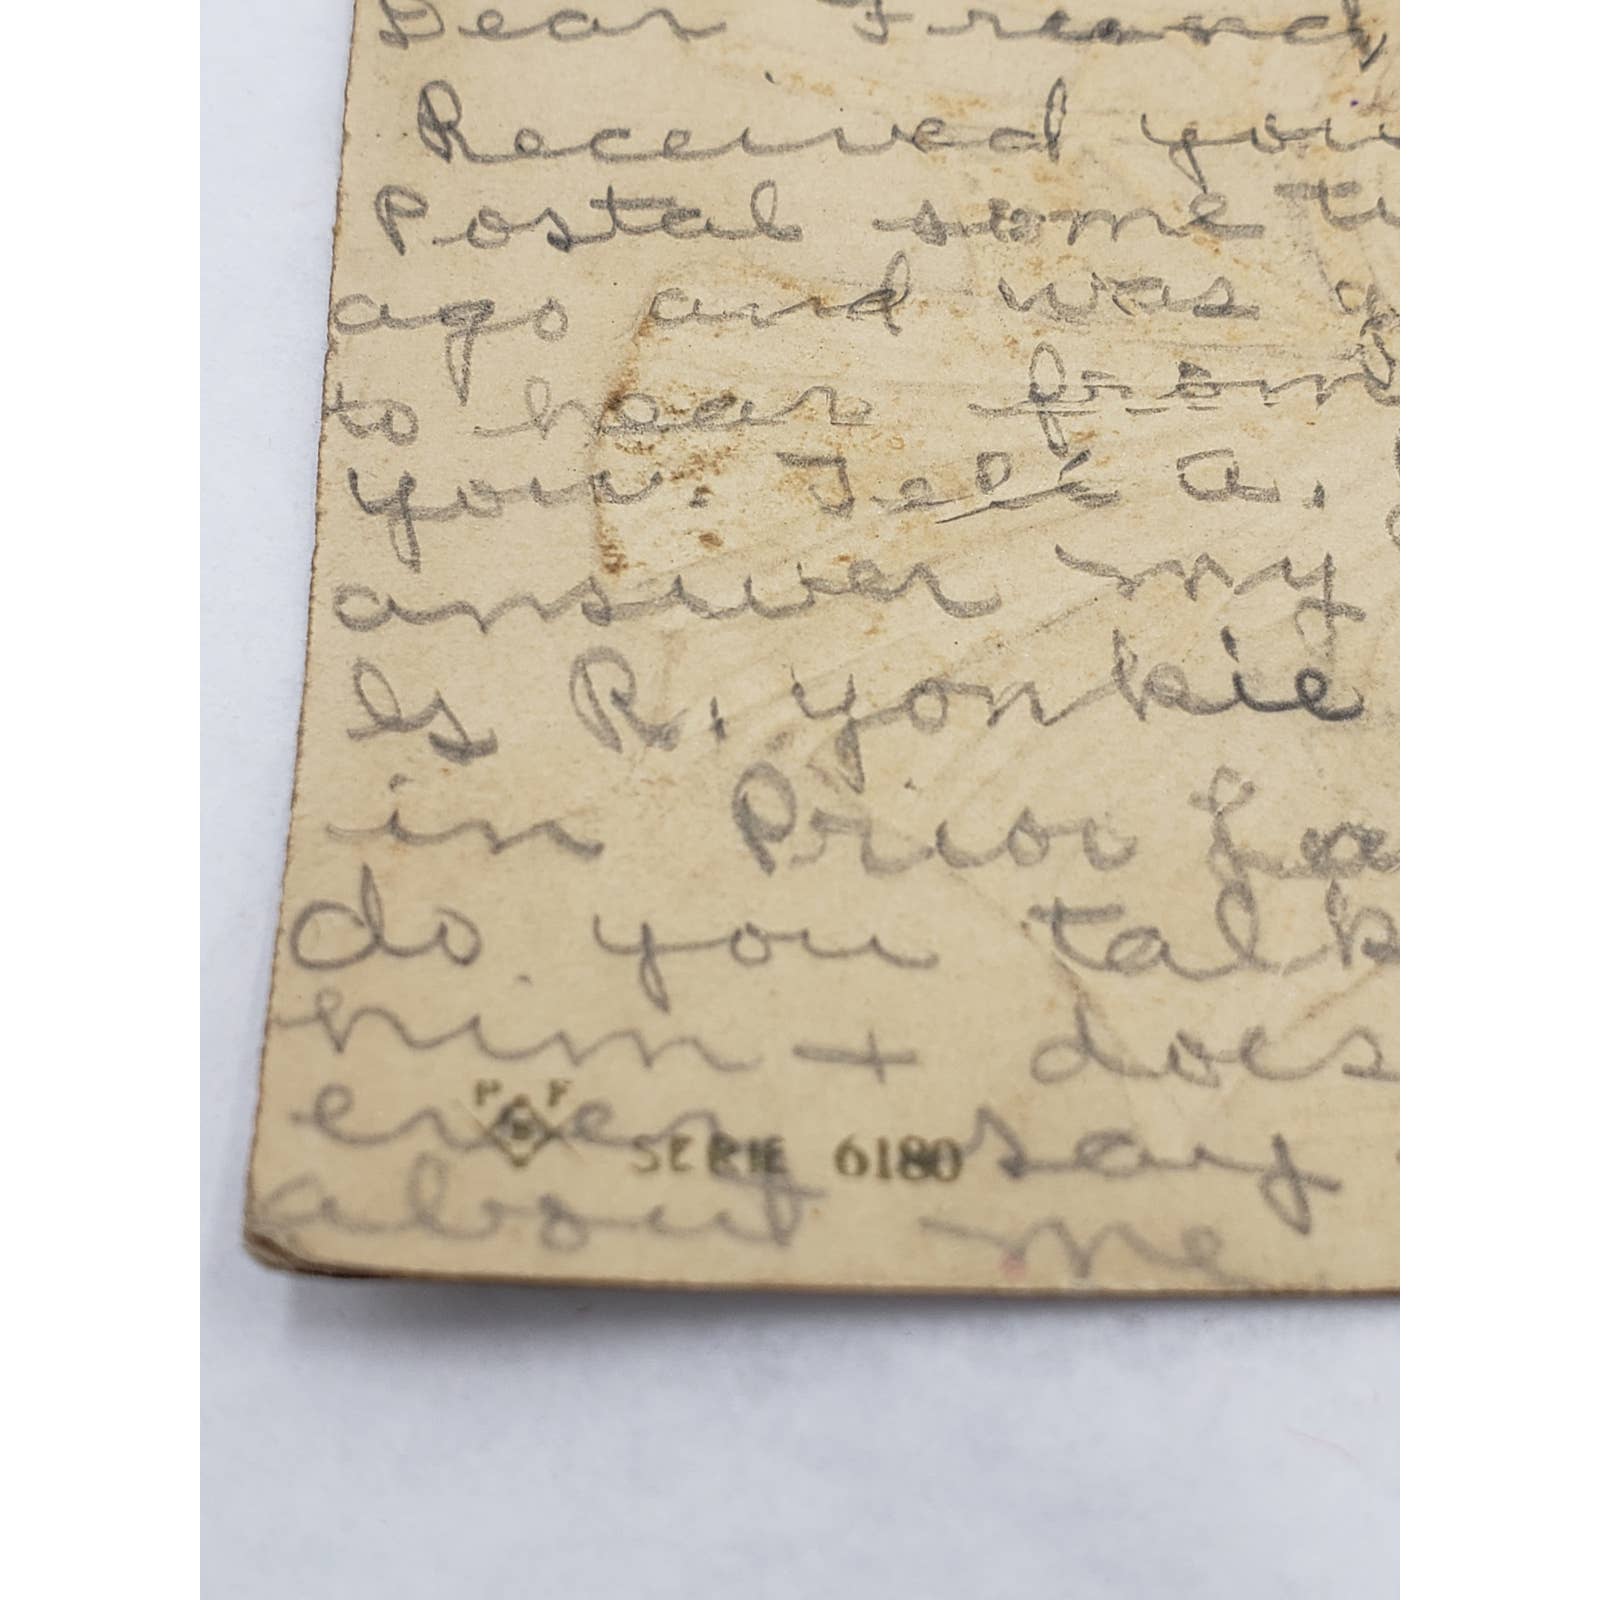 Dear Freind,
Received you
Postal some ti
ago and was g
to hear from
you. Tell A.
answer my
Is R. yonkie
in Prior La
do you talk
him + does
P F
ever say
SERIE 6180
about me